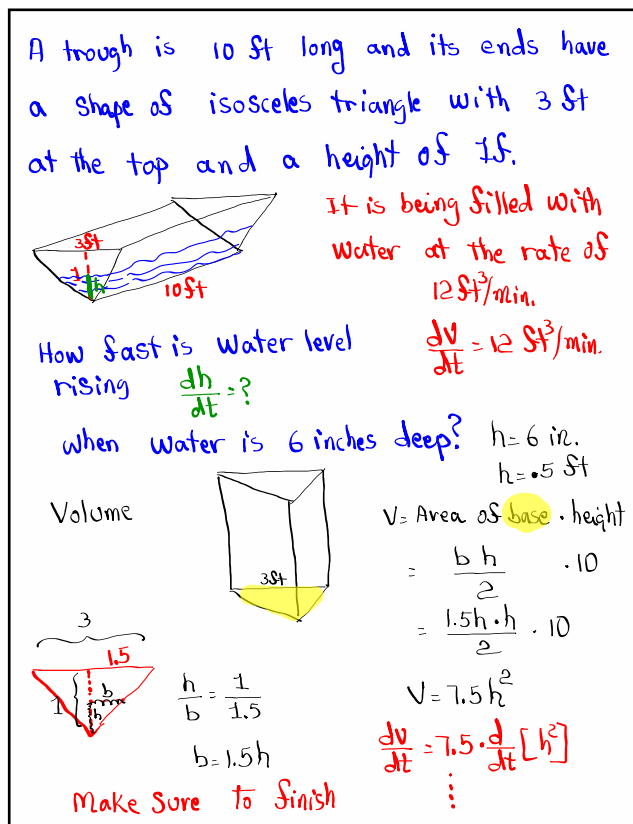 A trough is 10 ft long and its ends have
a shape of isosceles triangle with 3 ft
at the top and a height of 1f.
3ft
1
h
10ft
It is being filled with
water at the rate of
12 ft³/min.
dV/dt = 12 ft³/min.
How fast is water level
rising dh/dt = ?
when water is 6 inches deep?
h = 6 in.
h = .5 ft
Volume
3ft
V = Area of base · height
= bh/2 · 10
= 1.5h·h/2 · 10
V = 7.5h²
dv/dt = 7.5 · d/dt [h²]
⋮
3
1.5
1
b
h
h/b = 1/1.5
b = 1.5h
Make sure to finish